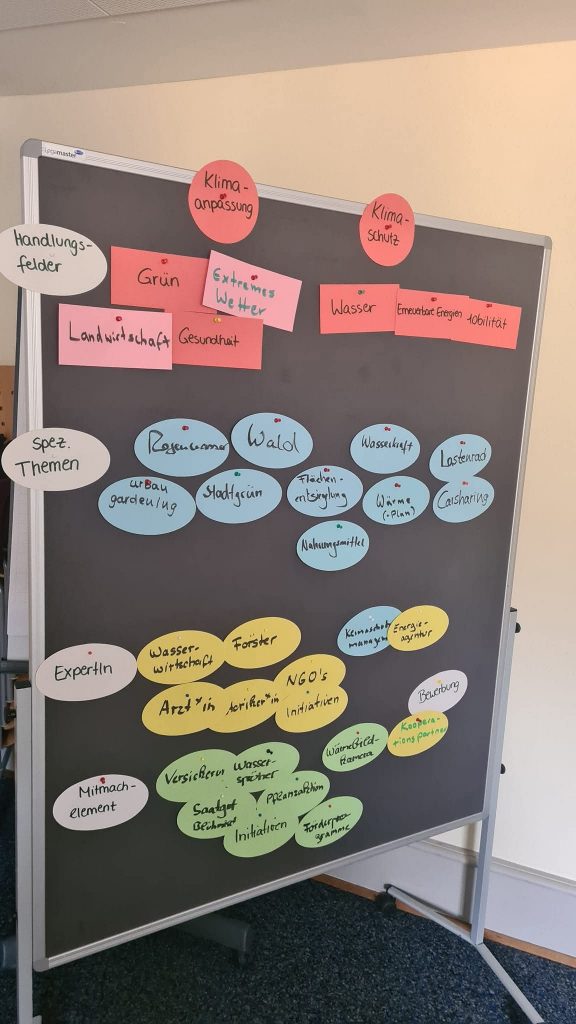 Legamaster
Klima-
anpassung
Klima-
schutz
Handlungs-
felder
Grün
Extremes
Wetter
Wasser
Erneuerbare Energien
Landwirtschaft
Gesundheit
spez.
Themen
Wald
Wasserkraft
Lastenrad
urban
gardening
Stadtgrün
Flächen-
entsieglung
Wärme
(-Plan)
Carsharing
Nahrungsmittel
ExpertIn
Wasser-
wirtschaft
Förster
Klimaschutz
manager
Energie-
agentur
Arzt*in
NGO's
Initiativen
Bewerbung
Koopera-
tionspartner
Mitmach-
element
Versichern
Wasser-
speicher
Wärmebild-
kamera
Saatgut
Pflanzaktion
Initiativen
Förderpro-
gramme